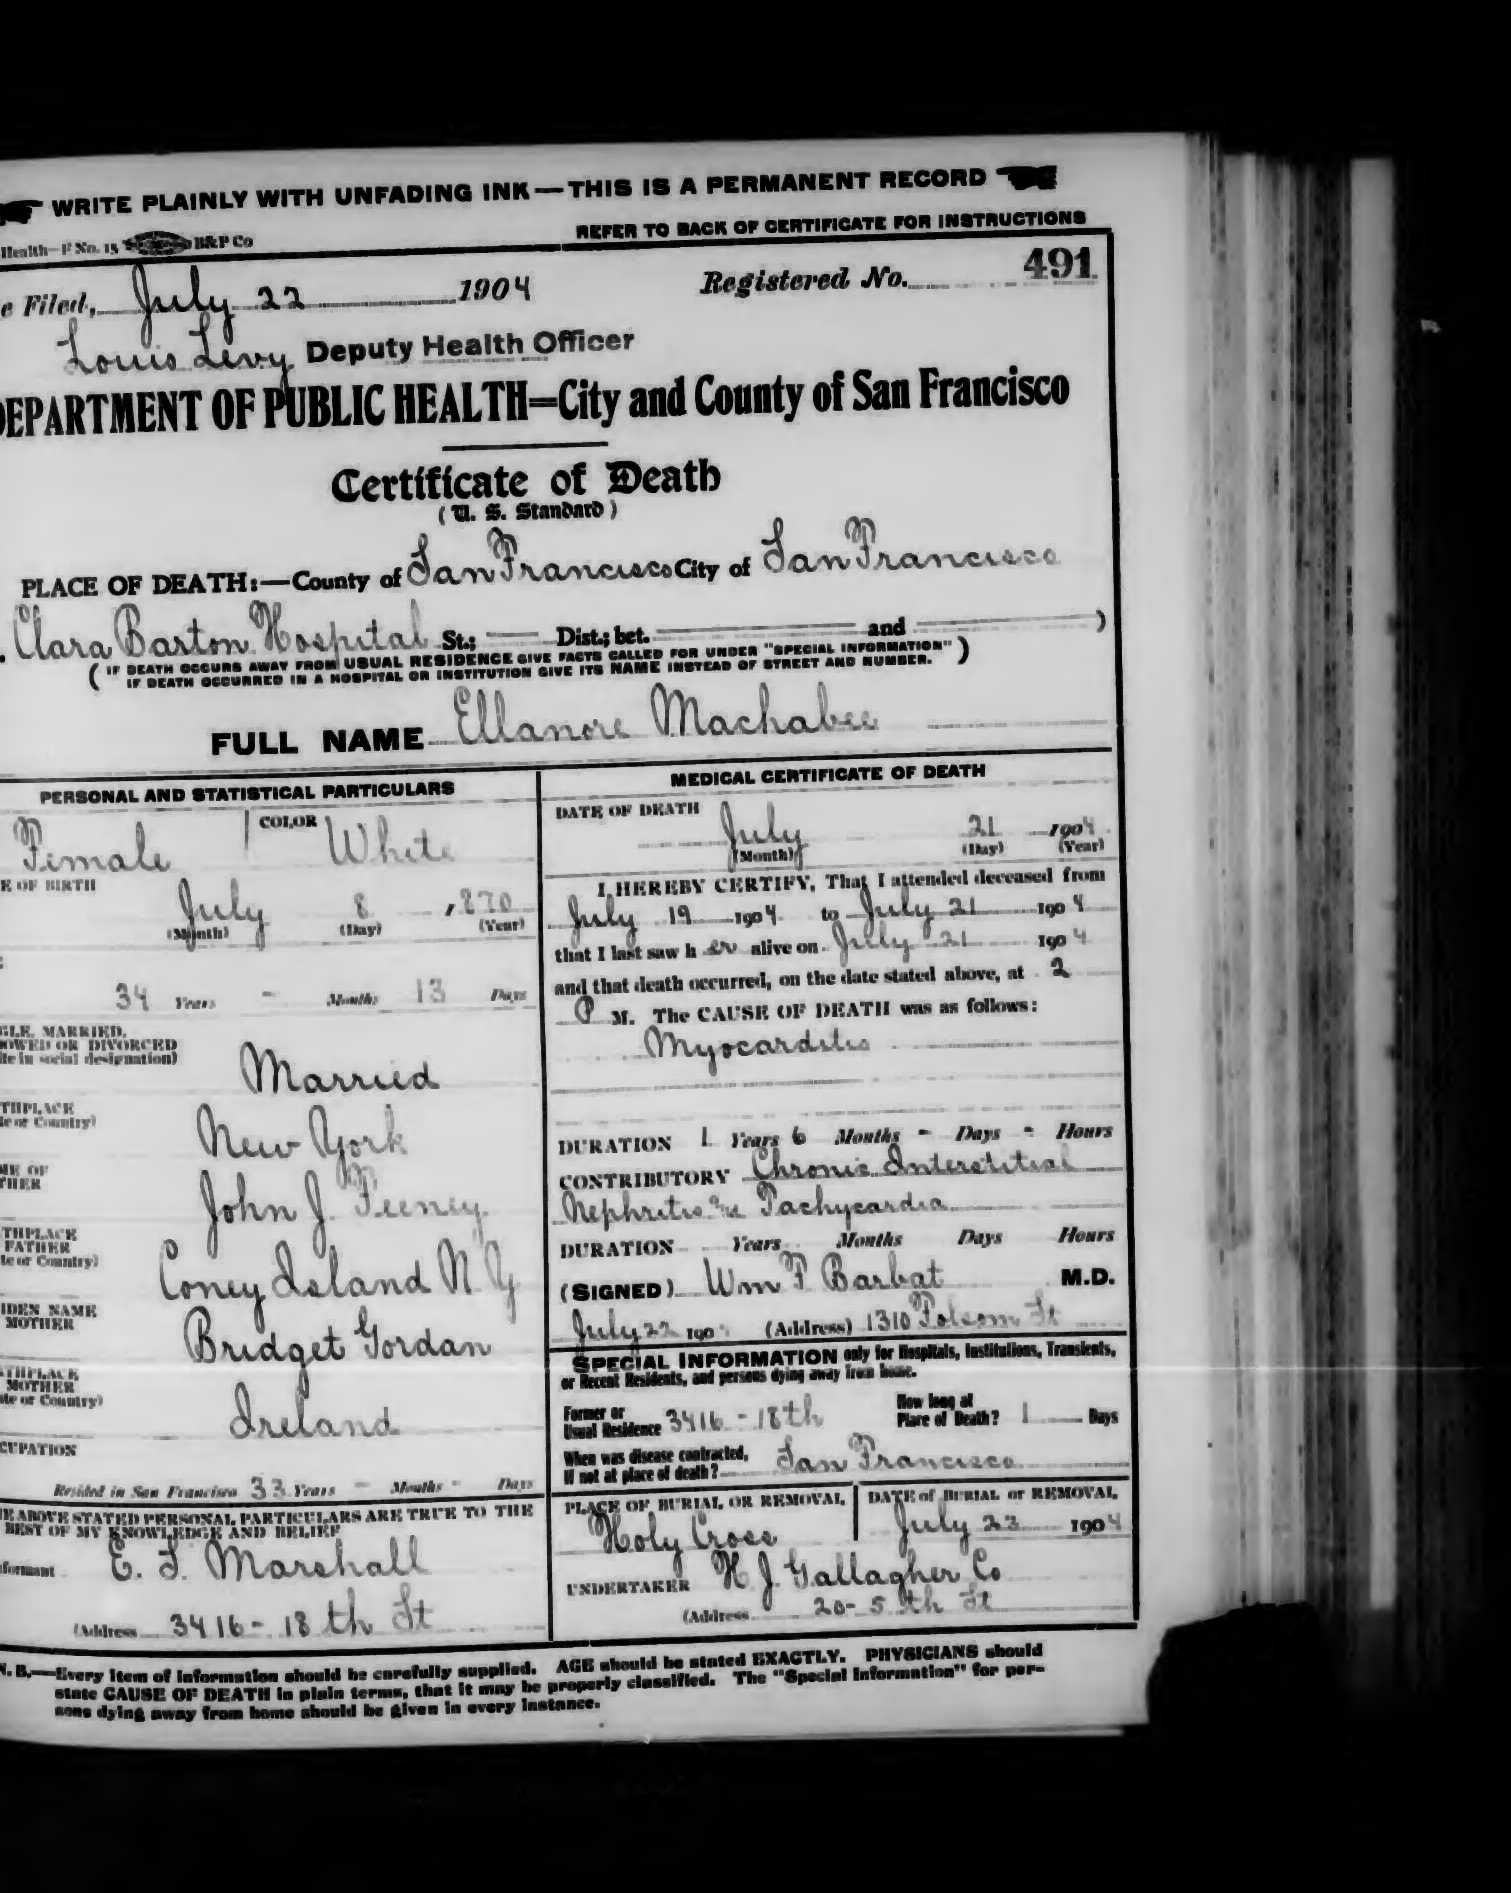 WRITE PLAINLY WITH UNFADING INK — THIS IS A PERMANENT RECORD
REFER TO BACK OF CERTIFICATE FOR INSTRUCTIONS
Health—F No. 15 B&P Co
e Filed, July 22 1904 Registered No. 491
Louis Levy Deputy Health Officer
DEPARTMENT OF PUBLIC HEALTH=City and County of San Francisco
Certificate of Death
(U. S. Standard)
PLACE OF DEATH:—County of San Francisco City of San Francisco
Clara Barton Hospital St.; Dist.; bet. and )
( IF DEATH OCCURS AWAY FROM USUAL RESIDENCE GIVE FACTS CALLED FOR UNDER "SPECIAL INFORMATION" )
IF DEATH OCCURRED IN A HOSPITAL OR INSTITUTION GIVE ITS NAME INSTEAD OF STREET AND NUMBER.
FULL NAME Ellanore Machabee
PERSONAL AND STATISTICAL PARTICULARS
Female COLOR White
E OF BIRTH
July 8 , 870
(Month) (Day) (Year)
34 Years - Months 13 Days
GLE, MARRIED,
OWED OR DIVORCED
ite in social designation)
Married
THPLACE
te or Country)
New York
ME OF
THER
John J. Feeney
THPLACE
FATHER
te or Country)
Coney Island N.Y
IDEN NAME
MOTHER
Bridget Gordan
THPLACE
MOTHER
te or Country)
Ireland
CUPATION
Resided in San Francisco 33 Years - Months - Days
E ABOVE STATED PERSONAL PARTICULARS ARE TRUE TO THE
BEST OF MY KNOWLEDGE AND BELIEF
formant E. F. Marshall
(Address 3416 - 18th St
MEDICAL CERTIFICATE OF DEATH
DATE OF DEATH
July 21 1904
(Month) (Day) (Year)
I HEREBY CERTIFY, That I attended deceased from
July 19 1904 to July 21 1904
that I last saw h er alive on July 21 1904
and that death occurred, on the date stated above, at 2
P M. The CAUSE OF DEATH was as follows:
Myocarditis
DURATION 1 Years 6 Months - Days - Hours
CONTRIBUTORY Chronic Interstitial
Nephritis Tachycardia
DURATION Years Months Days Hours
(SIGNED) Wm F. Barbat M.D.
July 22 190 (Address) 1310 Folsom St
SPECIAL INFORMATION only for Hospitals, Institutions, Transients,
or Recent Residents, and persons dying away from home.
Former or
Usual Residence 3416 - 18th
How long at
Place of Death? 1 Days
When was disease contracted,
If not at place of death? San Francisco
PLACE OF BURIAL OR REMOVAL
Holy Cross
DATE of BURIAL or REMOVAL
July 23 1904
UNDERTAKER H. J. Gallagher Co
(Address 20 - 5th St
N. B.—Every item of information should be carefully supplied. AGE should be stated EXACTLY. PHYSICIANS should
state CAUSE OF DEATH in plain terms, that it may be properly classified. The "Special Information" for per-
sons dying away from home should be given in every instance.